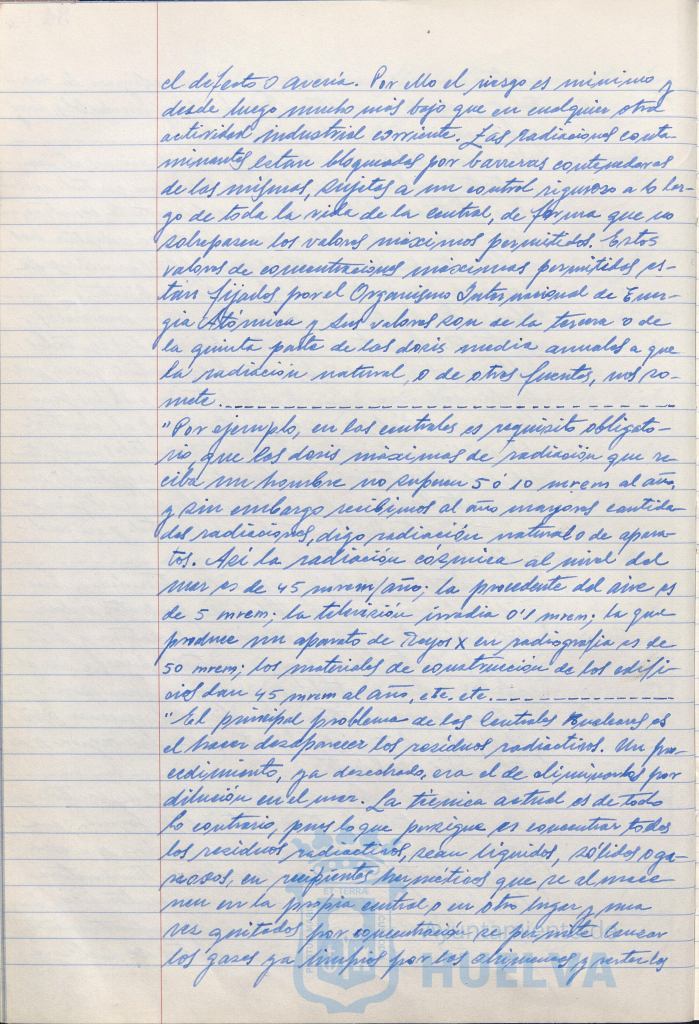 el defecto o avería. Por ello el riesgo es mínimo y
desde luego mucho más bajo que en cualquier otra
actividad industrial corriente. Las radiaciones conta
minantes estan bloqueadas por barreras contenedoras
de las mismas, sujetas a un control riguroso a lo lar-
go de toda la vida de la central, de forma que no
sobrepasen los valores máximos permitidos. Estos
valores de concentraciones máximas permitidas es-
tán fijados por el Organismo Internacional de Ener-
gía Atómica y sus valores son de la tercera o de
la quinta parte de las dosis media anuales a que
la radiación natural, o de otras fuentes, nos so-
mete.
"Por ejemplo, en las centrales es requisito obligato-
rio que las dosis máximas de radiación que re
ciba un hombre no superen 5 ó 10 mrem al año,
y sin embargo recibimos al año mayores cantida
des radiaciones, digo radiación natural o de apara-
tos. Así la radiación cósmica al nivel del
mar es de 45 mrem/año; la procedente del aire es
de 5 mrem; la televisión irradia 0'1 mrem; la que
produce un aparato de Rayos X en radiografía es de
50 mrem; los materiales de construcción de los edifi-
cios dan 45 mrem al año, etc. etc.
"El principal problema de las Centrales Nucleares es
el hacer desaparecer los residuos radiactivos. Un pro
cedimiento, ya desechado, era el de eliminarlos por
dilución en el mar. La técnica actual es de todo
lo contrario, pues lo que persigue es concentrar todos
los residuos radiactivos, sean líquidos, sólidos o ga-
seosos, en recipientes herméticos que se almace
nen en la propia central o en otro lugar y una
vez quitados por concentración se permite lanzar
los gases ya limpios por las chimeneas y verter los
Ayuntamiento de
HUELVA